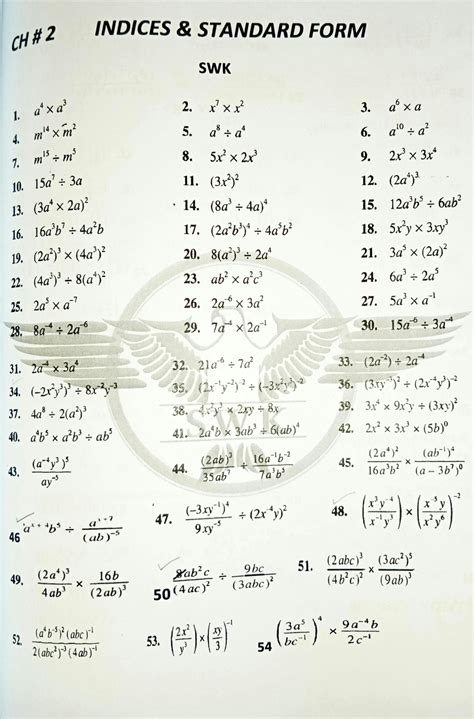 CH # 2 INDICES & STANDARD FORM
SWK
1. a⁴ × a³ 2. x⁷ × x² 3. a⁶ × a
4. m¹⁴ × m² 5. a⁸ ÷ a⁴ 6. a¹⁰ ÷ a²
7. m¹⁵ ÷ m⁵ 8. 5x² × 2x³ 9. 2x³ × 3x⁴
10. 15a⁷ ÷ 3a 11. (3x²)² 12. (2a⁴)³
13. (3a⁴ × 2a)² 14. (8a³ ÷ 4a)⁴ 15. 12a³b⁵ ÷ 6ab²
16. 16a³b⁷ ÷ 4a²b 17. (2a²b³)⁴ ÷ 4a⁵b² 18. 5x²y × 3xy³
19. (2a²)³ × (4a³)² 20. 8(a²)³ ÷ 2a⁴ 21. 3a⁵ × (2a)²
22. (4a³)³ ÷ 8(a⁴)² 23. ab² × a²c³ 24. 6a³ ÷ 2a⁵
25. 2a⁵ × a⁻⁷ 26. 2a⁻⁶ × 3a² 27. 5a³ × a⁻¹
28. 8a⁻⁴ ÷ 2a⁻⁶ 29. 7a⁻⁴ × 2a⁻¹ 30. 15a⁻⁶ ÷ 3a⁻⁴
31. 2a⁻⁴ × 3a⁴ 32. 21a⁻⁶ ÷ 7a² 33. (2a⁻²) ÷ 2a⁴
34. (-2x²y³)³ ÷ 8x⁻²y⁻³ 35. (2x⁻¹y⁻²)² ÷ (-3x²y²)³ 36. (3xy⁻¹)² ÷ (2x⁻⁴y)²
37. 4a⁸ ÷ 2(a²)³ 38. 4x²y² × 2xy ÷ 8x 39. 3x⁴ × 9x²y ÷ (3xy)²
40. a⁴b⁵ × a²b³ ÷ ab⁵ 41. 2a⁴b × 3ab³ ÷ 6(ab)⁴ 42. 2x² × 3x³ × (5b)⁰
43. (a⁻⁴y³)⁵ / ay⁻⁵ 44. (2ab)³ / 35ab⁷ ÷ 16a⁻¹b⁻² / 7a³b⁵ 45. (2a⁴)² / 16a³b² × (ab⁻¹)⁴ / (a − 3b³)⁰
46 aˣ⁺⁴b⁵ ÷ aˣ⁺⁷ / (ab)⁻⁵ 47. (-3xy⁻¹)⁴ / 9xy⁻⁵ ÷ (2x⁻⁴y)² 48. (x³y⁻⁴ / x⁻¹y³) × (x⁻⁵y / x²y⁶)⁻²
49. (2a⁴)³ / 4ab³ × 16b / (2ab)³ 50 8ab²c / (4ac)² ÷ 9bc / (3abc)² 51. (2abc)³ / (4b²c)² × (3ac²)⁵ / (9ab)³
52. (a⁴b⁻⁵)²(abc)⁻¹ / 2(abc³)⁻³(4ab)⁻¹ 53. (2x² / y³) × (xy / 3)⁻¹ 54 (3a⁵ / bc⁻¹)⁴ × 9a⁻⁴b / 2c⁻¹